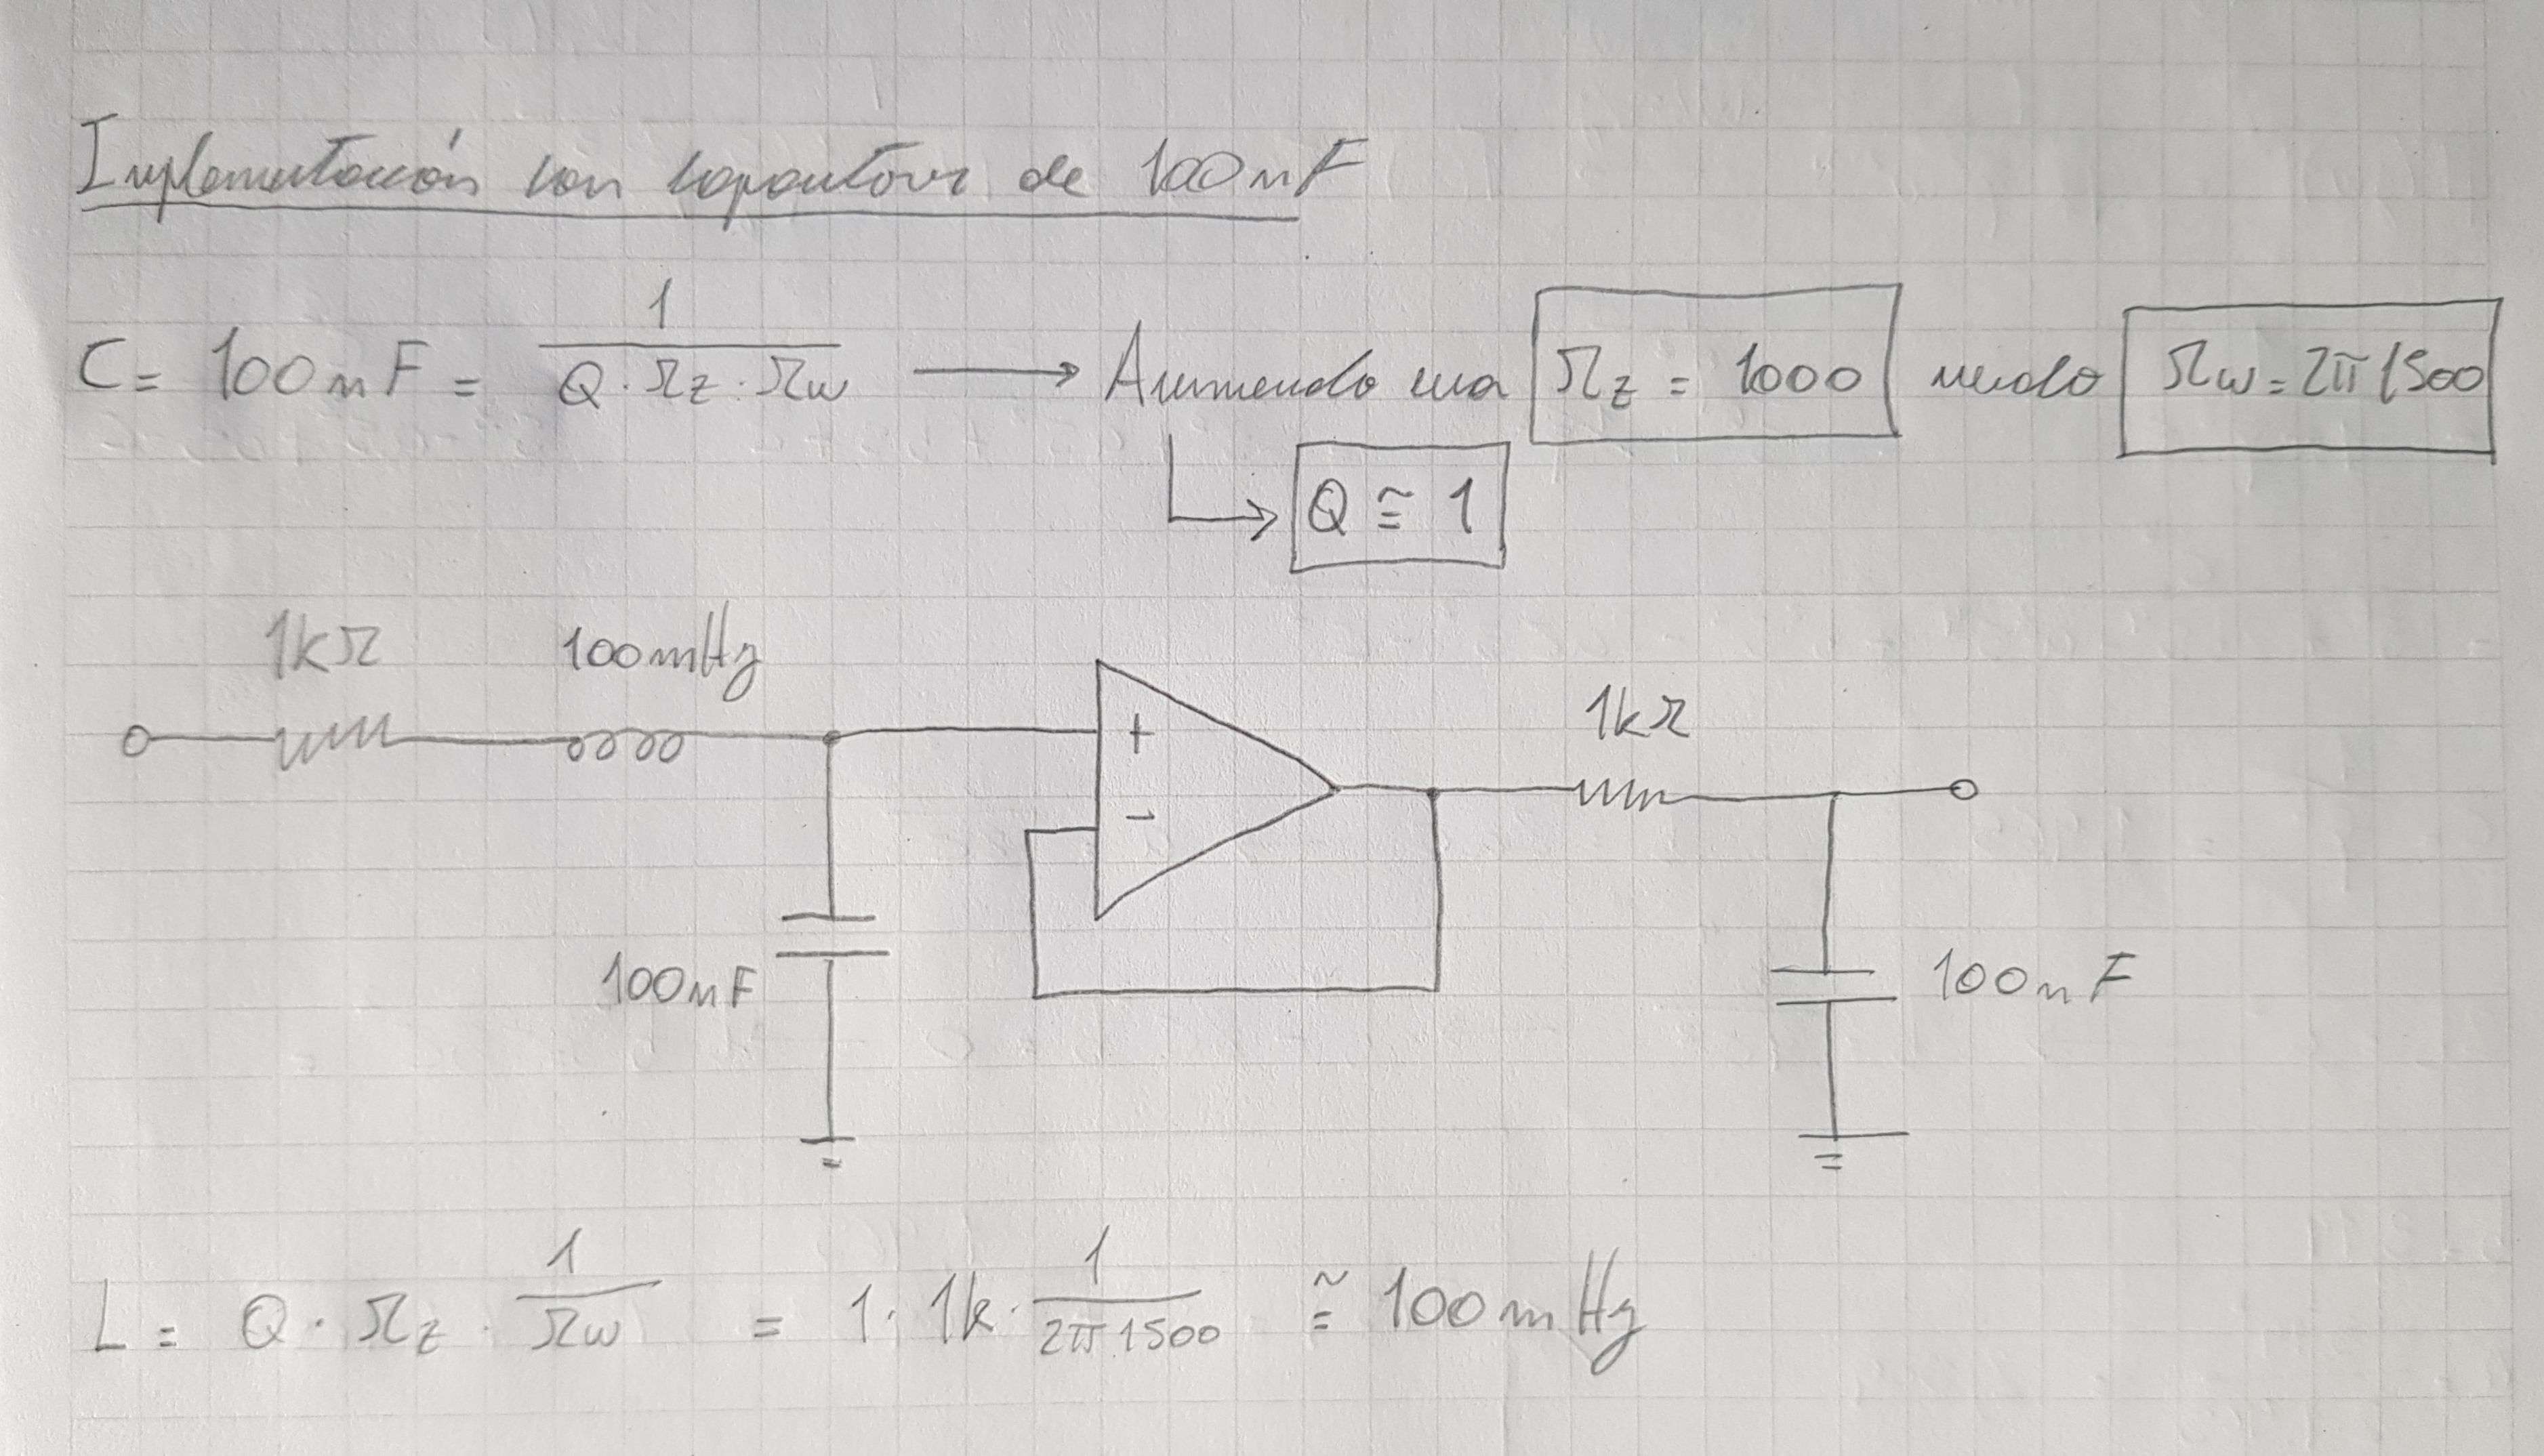 Implementación con capacitores de 100nF
C = 100nF = 1 / (Q · Ωz · Ωw) → Asumiendo una Ωz = 1000 siendo Ωw = 2π1500
Q ≅ 1
1kΩ 100mHy
+
1kΩ
-
100nF
100nF
L = Q · Ωz · 1/Ωw = 1 · 1k · 1/(2π1500) ≅ 100mHy